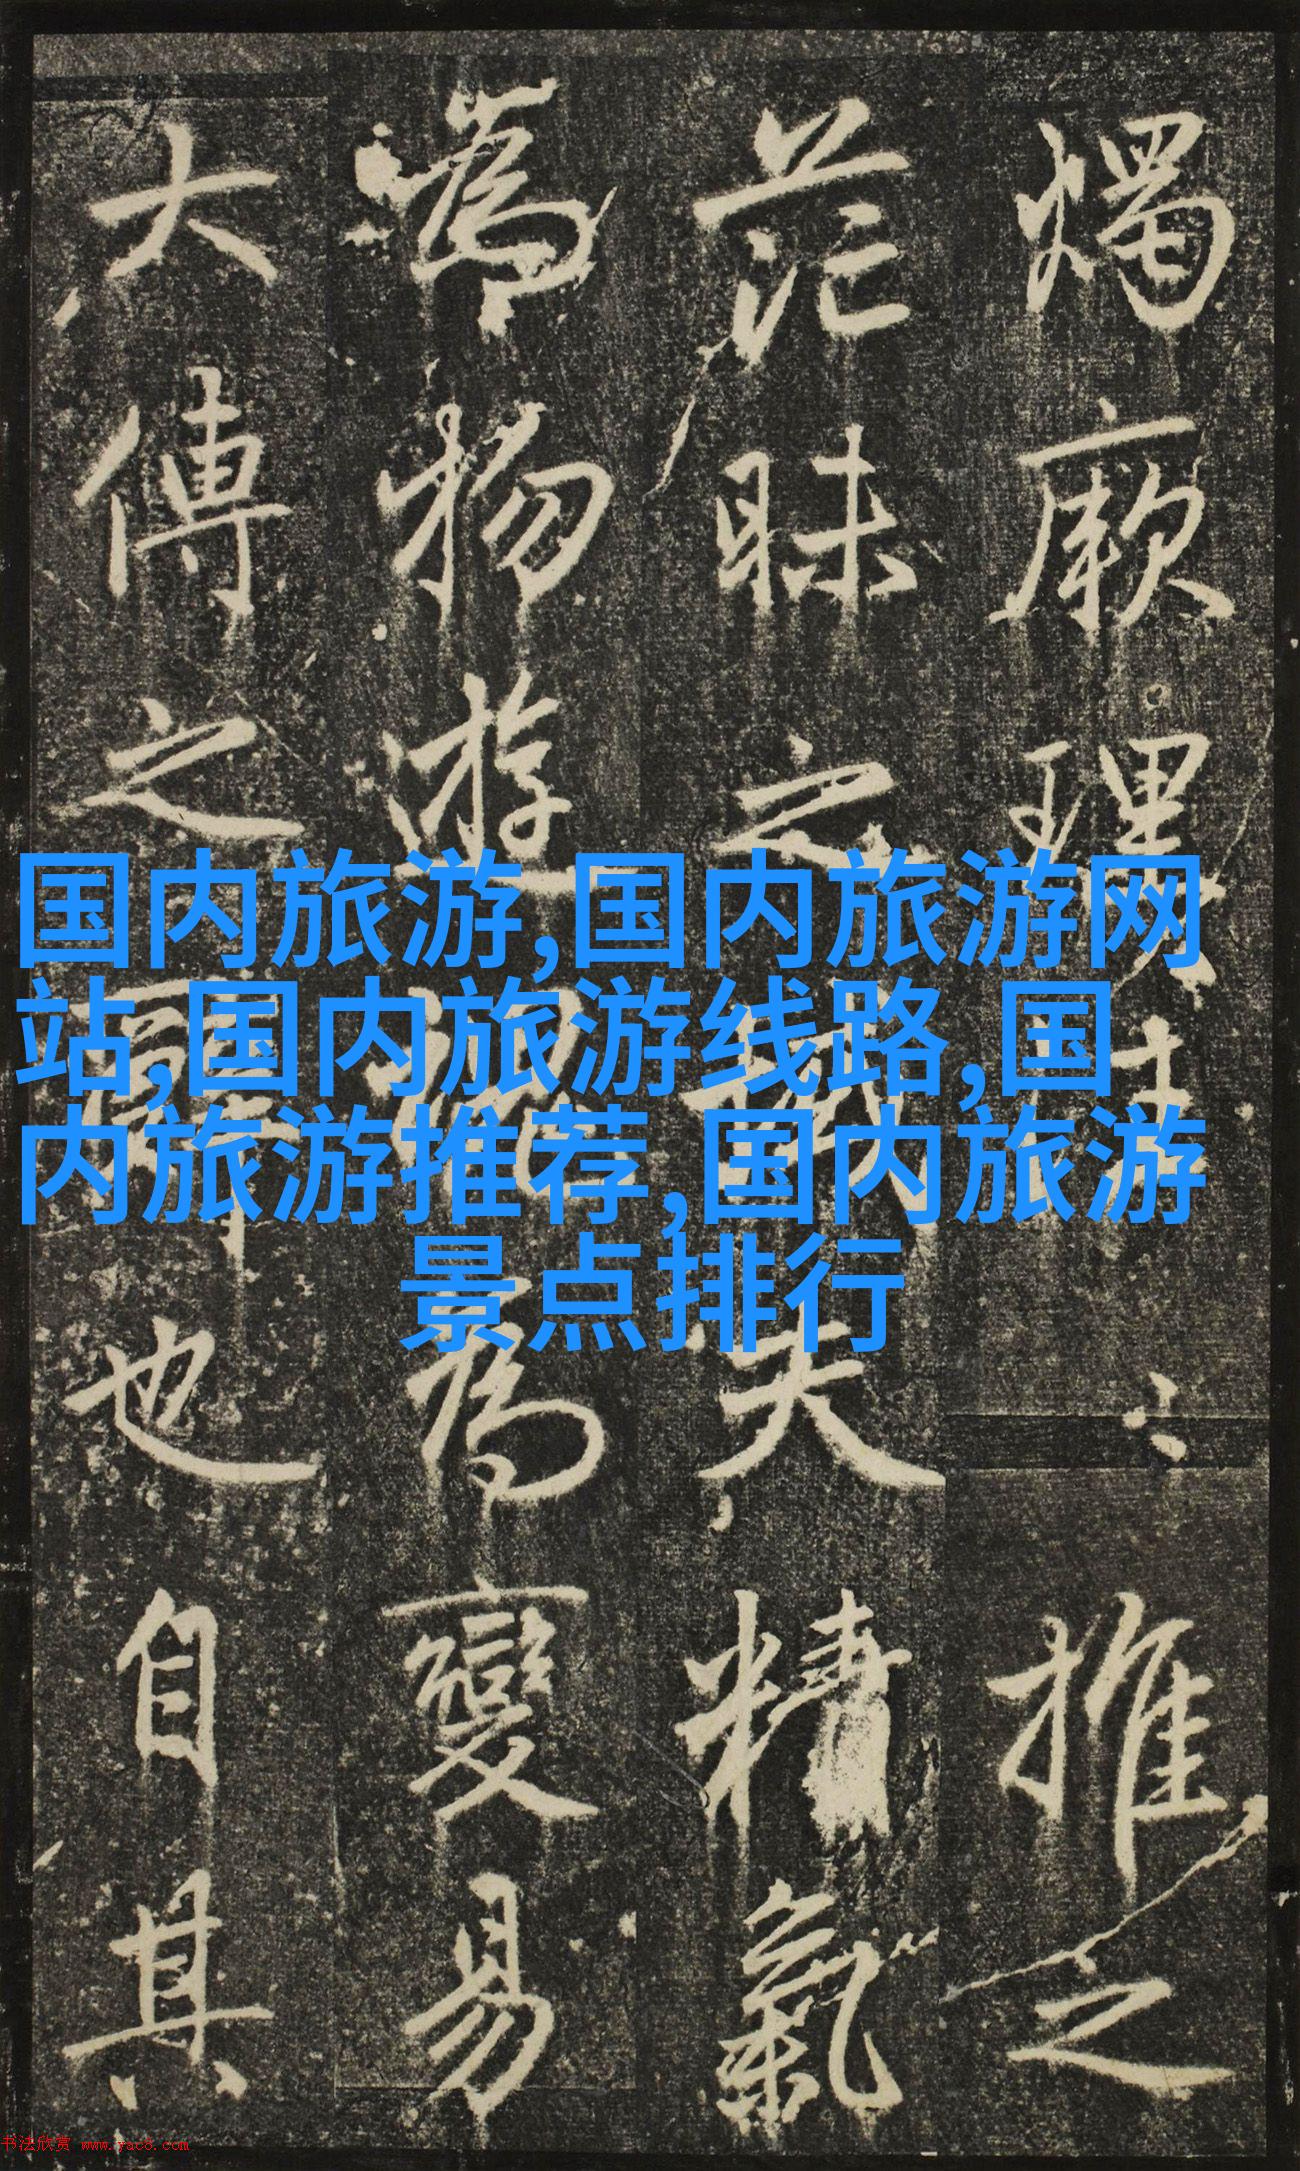 燭厥理推之
茫昧之夫精氣
為物遊魂為變易
大傳之辭也自其
国内旅游,国内旅游网
站,国内旅游线路,国
内旅游推荐,国内旅游
景点排行
书法欣赏 www.yac8.com